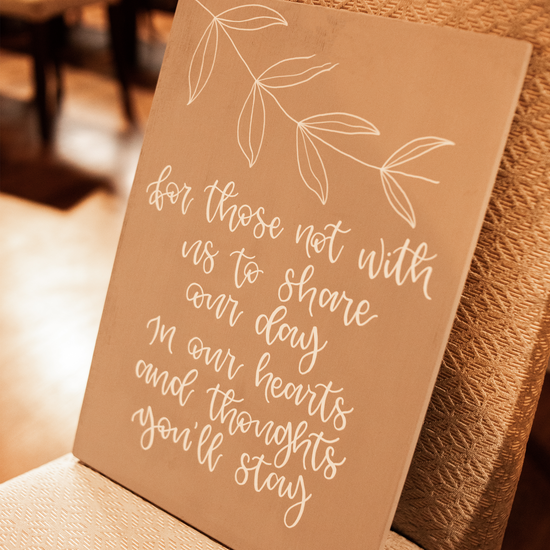 for those not with
us to share
our day
In our hearts
and thoughts
you'll stay